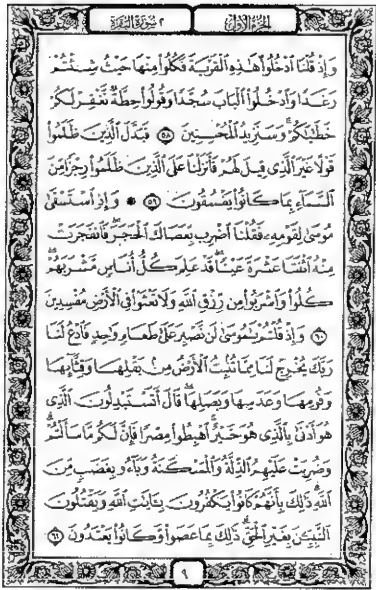 الجزء الأول
٢ سورة البقرة
وَإِذْ قُلْنَا ٱدْخُلُوا۟ هَٰذِهِ ٱلْقَرْيَةَ فَكُلُوا۟ مِنْهَا حَيْثُ شِئْتُمْ
رَغَدًا وَٱدْخُلُوا۟ ٱلْبَابَ سُجَّدًا وَقُولُوا۟ حِطَّةٌ نَّغْفِرْ لَكُمْ
خَطَٰيَٰكُمْ ۚ وَسَنَزِيدُ ٱلْمُحْسِنِينَ ۝٥٨ فَبَدَّلَ ٱلَّذِينَ ظَلَمُوا۟
قَوْلًا غَيْرَ ٱلَّذِى قِيلَ لَهُمْ فَأَنزَلْنَا عَلَى ٱلَّذِينَ ظَلَمُوا۟ رِجْزًا مِّنَ
ٱلسَّمَآءِ بِمَا كَانُوا۟ يَفْسُقُونَ ۝٥٩ ۞ وَإِذِ ٱسْتَسْقَىٰ
مُوسَىٰ لِقَوْمِهِۦ فَقُلْنَا ٱضْرِب بِّعَصَاكَ ٱلْحَجَرَ ۖ فَٱنفَجَرَتْ
مِنْهُ ٱثْنَتَا عَشْرَةَ عَيْنًا ۖ قَدْ عَلِمَ كُلُّ أُنَاسٍ مَّشْرَبَهُمْ ۖ
كُلُوا۟ وَٱشْرَبُوا۟ مِن رِّزْقِ ٱللَّهِ وَلَا تَعْثَوْا۟ فِى ٱلْأَرْضِ مُفْسِدِينَ
۝٦٠ وَإِذْ قُلْتُمْ يَٰمُوسَىٰ لَن نَّصْبِرَ عَلَىٰ طَعَامٍ وَٰحِدٍ فَٱدْعُ لَنَا
رَبَّكَ يُخْرِجْ لَنَا مِمَّا تُنۢبِتُ ٱلْأَرْضُ مِنۢ بَقْلِهَا وَقِثَّآئِهَا
وَفُومِهَا وَعَدَسِهَا وَبَصَلِهَا ۖ قَالَ أَتَسْتَبْدِلُونَ ٱلَّذِى
هُوَ أَدْنَىٰ بِٱلَّذِى هُوَ خَيْرٌ ۚ ٱهْبِطُوا۟ مِصْرًا فَإِنَّ لَكُم مَّا سَأَلْتُمْ ۗ
وَضُرِبَتْ عَلَيْهِمُ ٱلذِّلَّةُ وَٱلْمَسْكَنَةُ وَبَآءُو بِغَضَبٍ مِّنَ
ٱللَّهِ ۗ ذَٰلِكَ بِأَنَّهُمْ كَانُوا۟ يَكْفُرُونَ بِـَٔايَٰتِ ٱللَّهِ وَيَقْتُلُونَ
ٱلنَّبِيِّـۧنَ بِغَيْرِ ٱلْحَقِّ ۗ ذَٰلِكَ بِمَا عَصَوا۟ وَّكَانُوا۟ يَعْتَدُونَ ۝٦١
٩